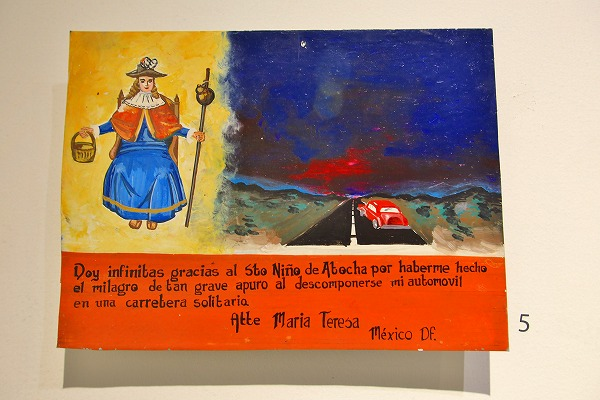 Doy infinitas gracias al Sto Niño de Atocha por haberme hecho
el milagro de tan grave apuro al descomponerse mi automovil
en una carretera solitaria
Atte Maria Teresa
México Df.
5